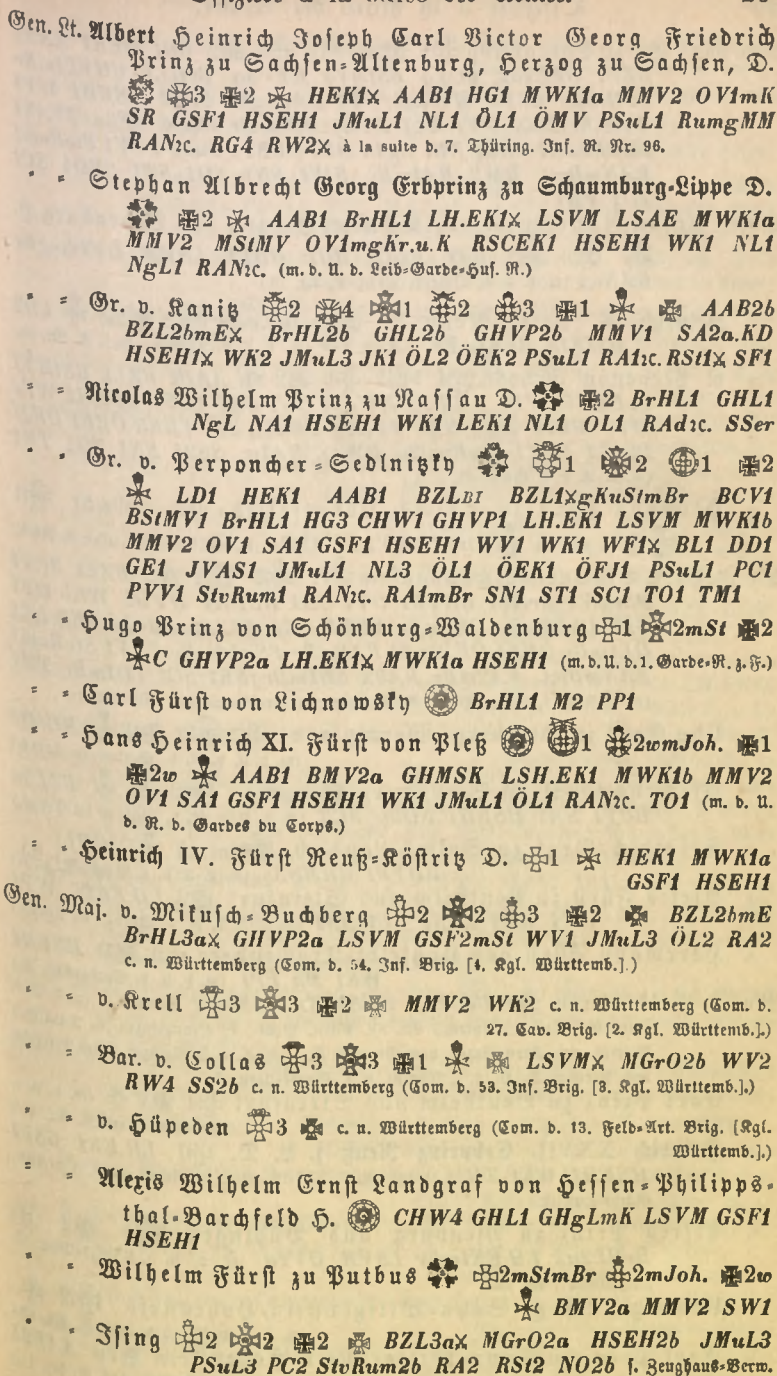 Offiziere à la
Gen. Lt. Albert Heinrich Joseph Carl Victor Georg Friedrich
Prinz zu Sachsen-Altenburg, Herzog zu Sachsen, D.
3 2 HEK1X AAB1 HG1 MWK1a MMV2 OV1mK
SR GSF1 HSEH1 JMuL1 NL1 ÖL1 ÖMV PSuL1 RumgMM
RANꝛc. RG4 RW2X à la suite d. 7. Thüring. Inf. R. Nr. 96.
" " Stephan Albrecht Georg Erbprinz zu Schaumburg-Lippe D.
2 AAB1 BrHL1 LH.EK1X LSVM LSAE MWK1a
MMV2 MStMV OV1mgKr.u.K RSCEK1 HSEH1 WK1 NL1
NgL1 RANꝛc. (m. d. U. d. Leib-Garde-Hus. R.)
" " Gr. v. Kanitz 2 4 1 2 3 1 AAB2b
BZL2bmEX BrHL2b GHL2b GHVP2b MMV1 SA2a.KD
HSEH1X WK2 JMuL3 JK1 ÖL2 ÖEK2 PSuL1 RA1ꝛc. RSt1X SF1
" " Nicolas Wilhelm Prinz zu Nassau D. 2 BrHL1 GHL1
NgL NA1 HSEH1 WK1 LEK1 NL1 OL1 RAdꝛc. SSer
" " Gr. v. Perponcher-Sedlnitzky 1 2 1 2
LD1 HEK1 AAB1 BZLBI BZL1XgKuStmBr BCV1
BStMV1 BrHL1 HG3 CHW1 GHVP1 LH.EK1 LSVM MWK1b
MMV2 OV1 SA1 GSF1 HSEH1 WV1 WK1 WF1X BL1 DD1
GE1 JVAS1 JMuL1 NL3 ÖL1 ÖEK1 ÖFJ1 PSuL1 PC1
PVV1 StvRum1 RANꝛc. RA1mBr SN1 ST1 SC1 TO1 TM1
" " Hugo Prinz von Schönburg-Waldenburg 1 2mSt 2
C GHVP2a LH.EK1X MWK1a HSEH1 (m. d. U. d. 1. Garde-R. z. F.)
" " Carl Fürst von Lichnowsky BrHL1 M2 PP1
" " Hans Heinrich XI. Fürst von Pleß 1 2wmJoh. 1
2w AAB1 BMV2a GHMSK LSH.EK1 MWK1b MMV2
OV1 SA1 GSF1 HSEH1 WK1 JMuL1 ÖL1 RANꝛc. TO1 (m. d. U.
d. R. d. Gardes du Corps.)
" " Heinrich IV. Fürst Reuß-Köstritz D. 1 HEK1 MWK1a
GSF1 HSEH1
Gen. Maj. v. Mikusch-Buchberg 2 2 3 2 BZL2bmE
BrHL3aX GHVP2a LSVM GSF2mSt WV1 JMuL3 ÖL2 RA2
c. n. Württemberg (Com. d. 54. Inf. Brig. [4. Kgl. Württemb.].)
" " v. Krell 3 3 2 MMV2 WK2 c. n. Württemberg (Com. d.
27. Cav. Brig. [2. Kgl. Württemb.].)
" " Bar. v. Collas 3 3 1 LSVMX MGrO2b WV2
RW4 SS2b c. n. Württemberg (Com. d. 53. Inf. Brig. [3. Kgl. Württemb.].)
" " v. Hüpeden 3 c. n. Württemberg (Com. d. 13. Feld-Art. Brig. [Kgl.
Württemb.].)
" " Alexis Wilhelm Ernst Landgraf von Hessen-Philipps-
thal-Barchfeld H. CHW4 GHL1 GHgLmK LSVM GSF1
HSEH1
" " Wilhelm Fürst zu Putbus 2mStmBr 2mJoh. 2w
BMV2a MMV2 SW1
" " Ising 2 2 2 BZL3aX MGrO2a HSEH2b JMuL3
PSuL3 PC2 StvRum2b RA2 RSt2 NO2b s. Zeughaus-Verw.